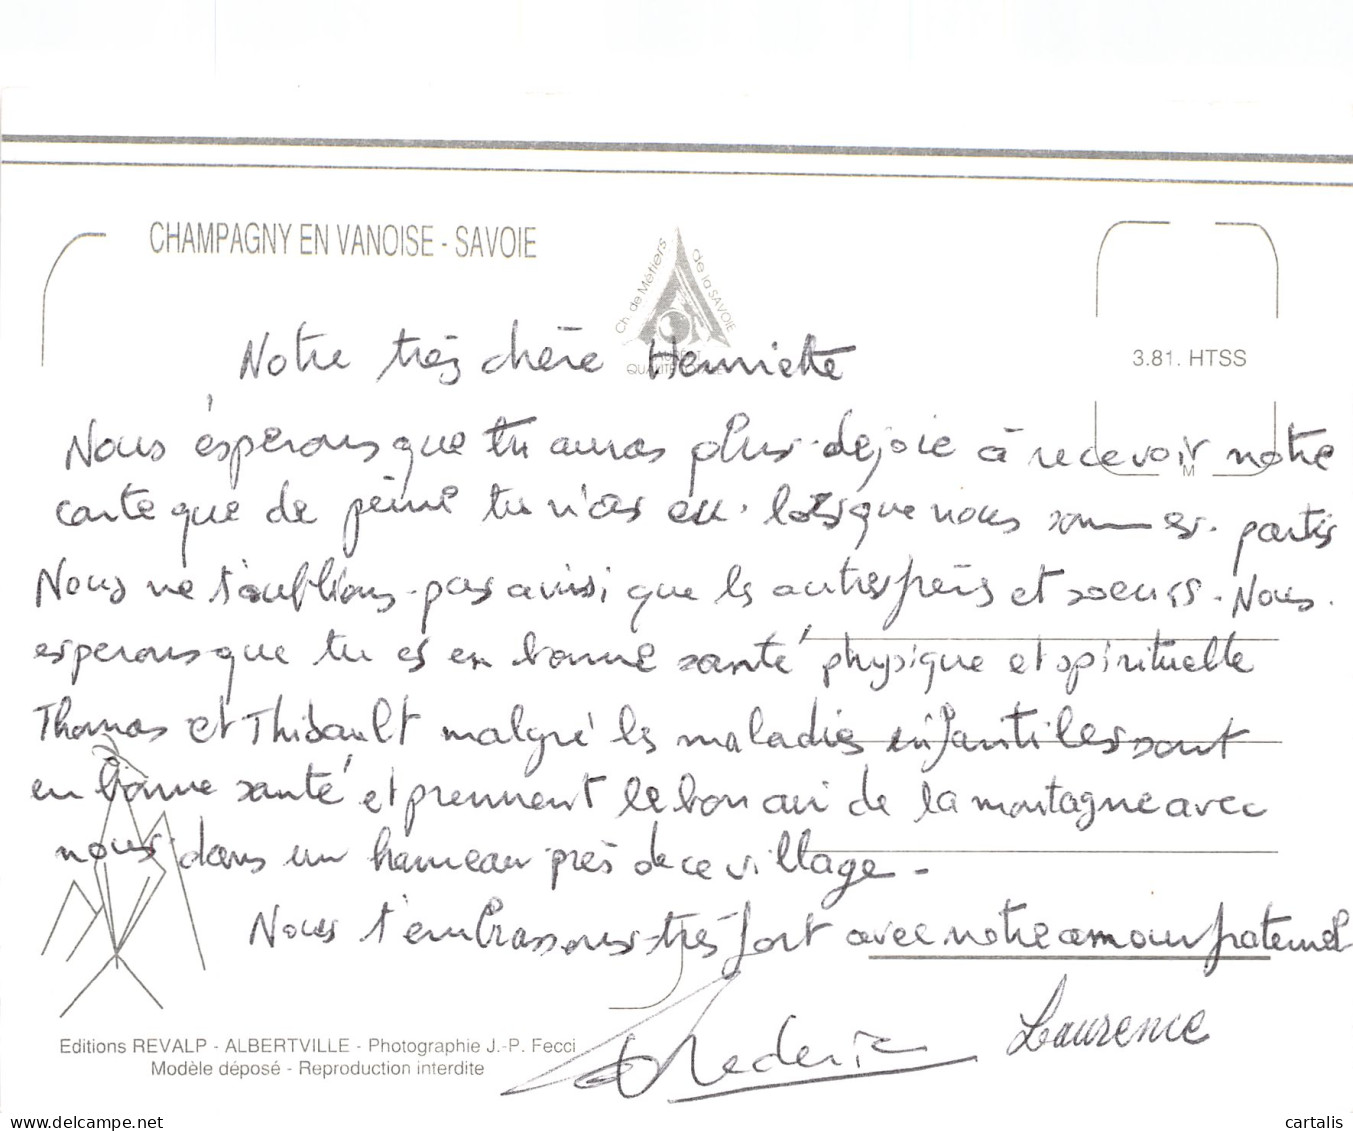 CHAMPAGNY EN VANOISE - SAVOIE
Ch. de Métiers de la SAVOIE
3.81. HTSS
Notre très chère Henriette
Nous ésperons que tu auras plus de joie à recevoir notre
carte que de peine tu n'as eu lorsque nous sommes partis
Nous ne t'oublions pas ainsi que les autres frères et soeurs. Nous
esperons que tu es en bonne santé physique et spirituelle
Thomas et Thibault malgré les maladies enfantiles sont
en bonne santé et prennent le bon air de la montagne avec
nous dans un hameau près de ce village.
Nous t'embrassons très fort avec notre amour fraternel
Frederic Laurence
Editions REVALP - ALBERTVILLE - Photographie J.-P. Fecci
Modèle déposé - Reproduction interdite
M
delcampe.net
cartalis